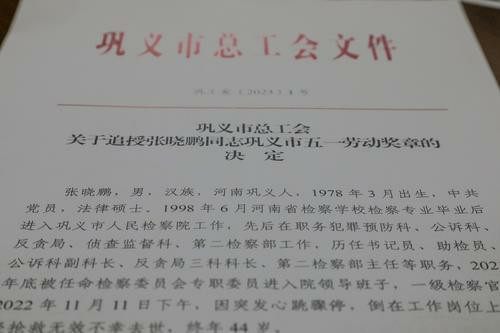 巩义市总工会文件
巩工发〔2023〕1号
巩义市总工会
关于追授张晓鹏同志巩义市五一劳动奖章的
决 定
张晓鹏，男，汉族，河南巩义人，1978年3月出生，中共
党员，法律硕士．1998年6月河南省检察学校检察专业毕业后
进入巩义市人民检察院工作，先后在职务犯罪预防科、公诉科、
反贪局、侦查监督科、第二检察部工作，历任书记员、助检员、
公诉科副科长、反贪局三科科长、第二检察部主任等职务，202
年底被任命检察委员会专职委员进入院领导班子，一级检察官
2022年11月11日下午，因突发心跳骤停，倒在工作岗位上
抢救无效不幸去世，终年44岁。